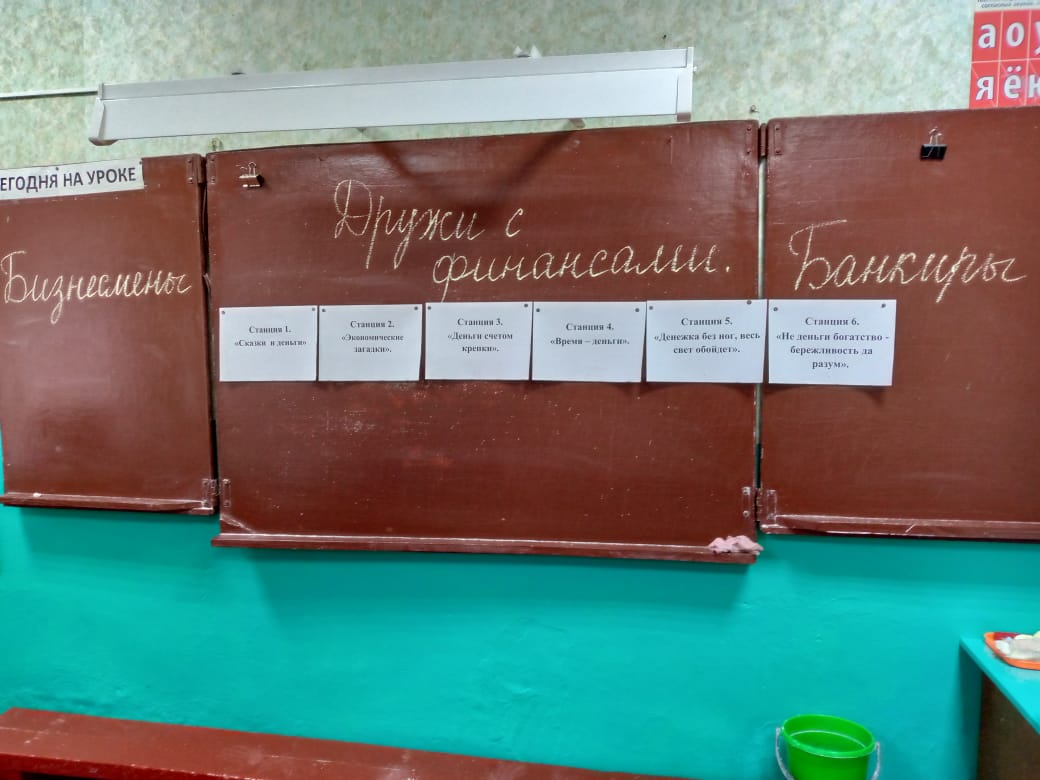 ЕГОДНЯ НА УРОКЕ
Бизнесмены
Дружи с
финансами.
Банкиры
Станция 1.
«Сказки и деньги»
Станция 2.
«Экономические
загадки».
Станция 3.
«Деньги счетом
крепки».
Станция 4.
«Время – деньги».
Станция 5.
«Денежка без ног, весь
свет обойдет».
Станция 6.
«Не деньги богатство -
бережливость да
разум».
а о у
я ё ю